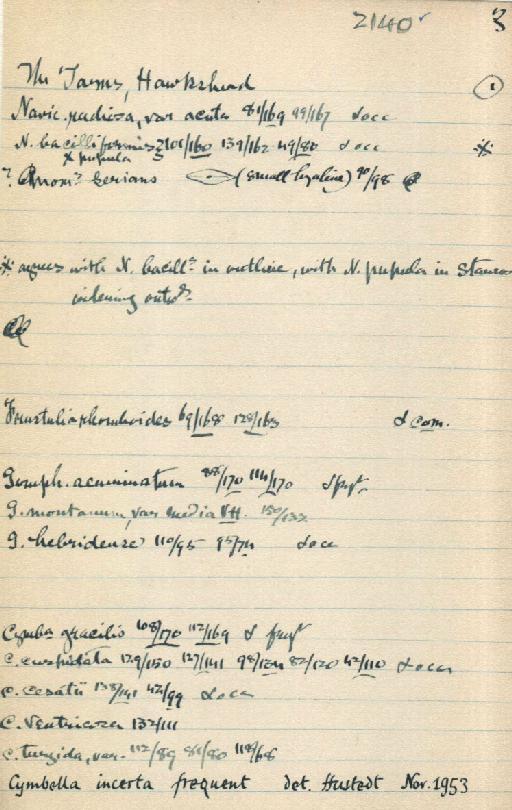 2140 3
The Tarns, Hawkshead 1
Navic. radiosa, var acuta 81/169 99/167 d occ
N. bacilliformis 2101/160 139/162 49/80 d occ *
x pupula
? Anom? serians (small hyaline) 90/98
* agrees with N. bacill? in outline, with N. pupula in Stauros
widening outwds.
Frustulia rhomboides 69/168 128/163 d com.
Gomph. acuminatum 88/170 114/170 d fqt.
G. montanum, var media VH. 150/133
G. hebridense 110/95 95/74 d occ
Cymba gracilis 108/170 112/169 d fqt
C. cuspidata 129/150 127/141 98/124 82/120 42/110 d occ
C. cesatii 138/141 42/99 d occ
C. ventricosa 132/111
C. turgida, var. 112/89 86/80 118/68
Cymbella incerta frequent det. Hustedt Nov. 1953